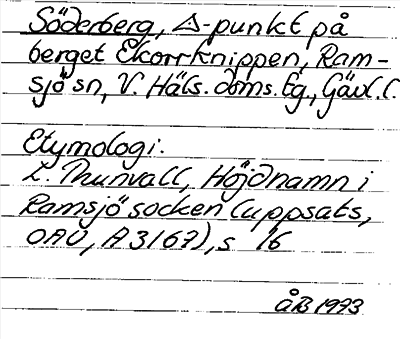 Söderberg, △-punkt på
berget Ekorrknippen, Ram-
sjö sn, V. Häls. doms. tg., Gävl. l.
Etymologi.
L. Thunvall, Höjdnamn i
Ramsjö socken (uppsats,
OAU, A 3167), s 16
ÅB 1973